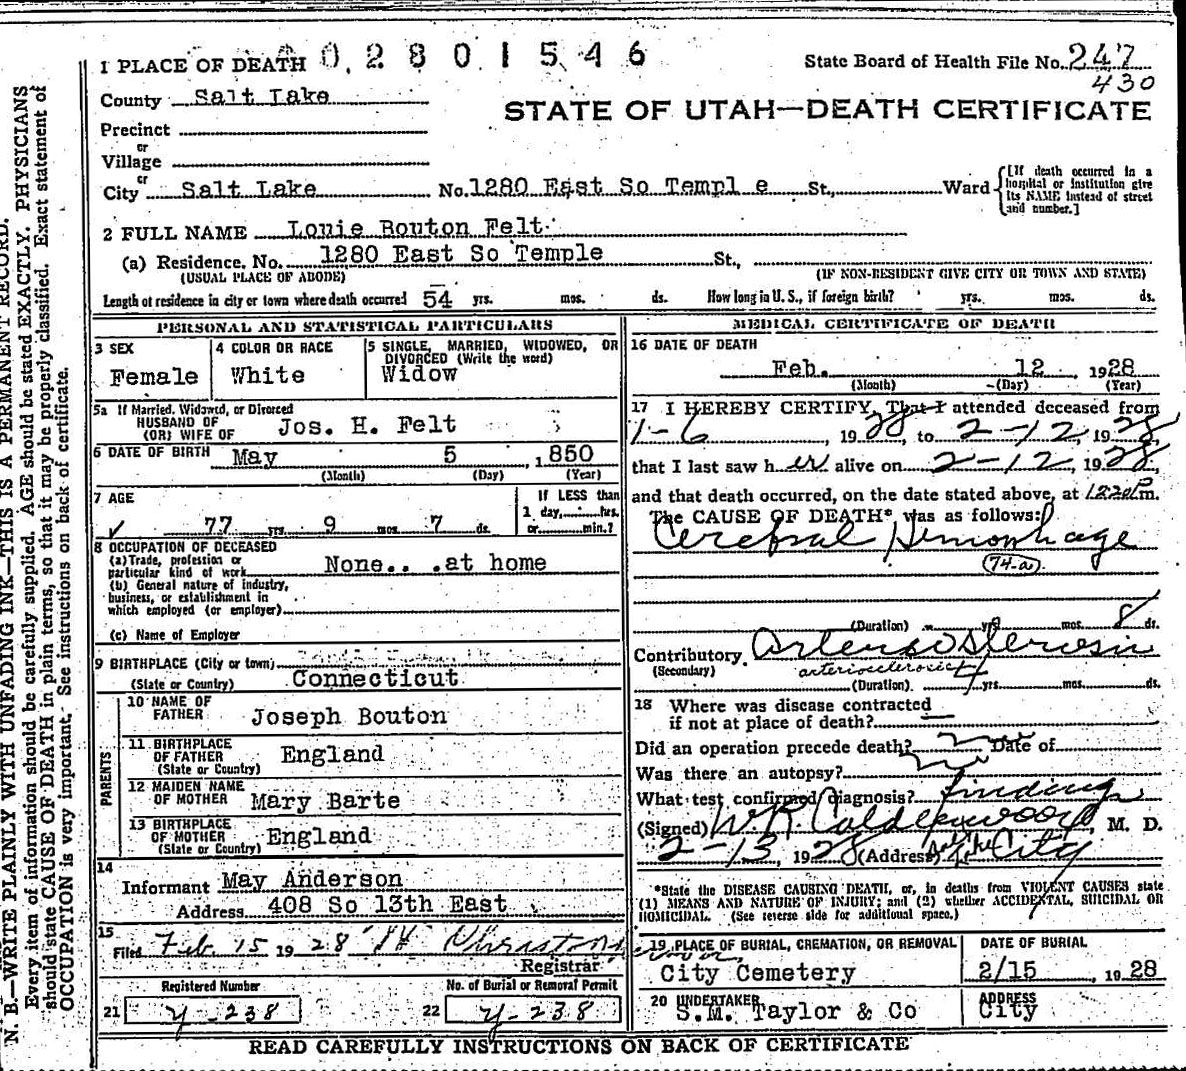 0 2 8 0 1 5 4 6
1 PLACE OF DEATH
State Board of Health File No. 247
430
County Salt Lake
STATE OF UTAH—DEATH CERTIFICATE
Precinct
or
Village
or
City Salt Lake No. 1280 East So Templ e St., Ward
[If death occurred in a
hospital or institution give
its NAME instead of street
and number.]
2 FULL NAME Louie Bouton Felt
(a) Residence. No. 1280 East So Temple St.,
(USUAL PLACE OF ABODE) (IF NON-RESIDENT GIVE CITY OR TOWN AND STATE)
Length of residence in city or town where death occurred 54 yrs. mos. ds. How long in U. S., if foreign birth? yrs. mos. ds.
PERSONAL AND STATISTICAL PARTICULARS
3 SEX
Female
4 COLOR OR RACE
White
5 SINGLE, MARRIED, WIDOWED, OR
DIVORCED (Write the word)
Widow
5a If Married, Widowed, or Divorced
HUSBAND OF
(OR) WIFE OF Jos. H. Felt
6 DATE OF BIRTH May 5, 1850
(Month) (Day) (Year)
7 AGE
77 yrs. 9 mos. 7 ds.
If LESS than
1 day, hrs.
or min.?
8 OCCUPATION OF DECEASED
(a) Trade, profession or
particular kind of work None.. .at home
(b) General nature of industry,
business, or establishment in
which employed (or employer)
(c) Name of Employer
9 BIRTHPLACE (City or town)
(State or Country) Connecticut
PARENTS
10 NAME OF
FATHER Joseph Bouton
11 BIRTHPLACE
OF FATHER England
(State or Country)
12 MAIDEN NAME
OF MOTHER Mary Barte
13 BIRTHPLACE
OF MOTHER England
(State or Country)
14
Informant May Anderson
Address 408 So 13th East
15
Filed Feb. 15 1928
Registrar
Registered Number
21 y-238
No. of Burial or Removal Permit
22 y-238
MEDICAL CERTIFICATE OF DEATH
16 DATE OF DEATH
Feb. 12, 1928
(Month) (Day) (Year)
17 I HEREBY CERTIFY, That I attended deceased from
1-6, 1928, to 2-12, 1928,
that I last saw her alive on 2-12, 1928,
and that death occurred, on the date stated above, at 1220Pm.
The CAUSE OF DEATH* was as follows:
Cerebral Hemorrhage
74-a
(Duration) yrs. mos. 8 ds.
Contributory Arteriosclerosis
(Secondary) arteriosclerosis
(Duration) yrs. mos. ds.
18 Where was disease contracted
if not at place of death?
Did an operation precede death? no Date of
Was there an autopsy? no
What test confirmed diagnosis? findings
(Signed) W. R. Calderwood, M. D.
2-13, 1928 (Address) City
*State the DISEASE CAUSING DEATH, or, in deaths from VIOLENT CAUSES state
(1) MEANS AND NATURE OF INJURY; and (2) whether ACCIDENTAL, SUICIDAL OR
HOMICIDAL. (See reverse side for additional space.)
19 PLACE OF BURIAL, CREMATION, OR REMOVAL
City Cemetery
DATE OF BURIAL
2/15, 1928
20 UNDERTAKER
S.M. Taylor & Co
ADDRESS
City
READ CAREFULLY INSTRUCTIONS ON BACK OF CERTIFICATE
N. B.—WRITE PLAINLY WITH UNFADING INK—THIS IS A PERMANENT RECORD.
Every item of information should be carefully supplied. AGE should be stated EXACTLY. PHYSICIANS
should state CAUSE OF DEATH in plain terms, so that it may be properly classified. Exact statement of
OCCUPATION is very important. See instructions on back of certificate.